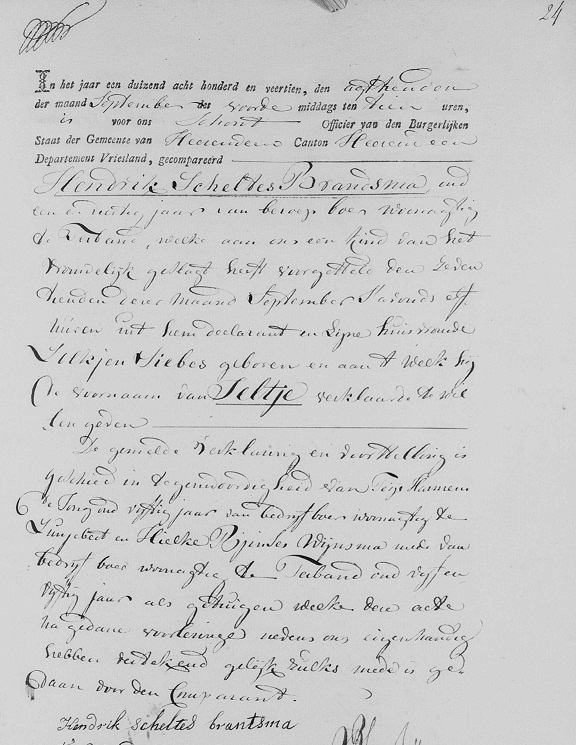 24
In het jaar een duizend acht honderd en veertien, den agthenden
der maand September des voorde middags ten tien uren,
is voor ons Schout Officier van den Burgerlijken
Staat der Gemeente van Heerenveen Canton Heerenveen
Departement Vriesland, gecompareerd
Hendrik Scheltes Brandsma, oud
een en dertig jaar van beroep boer woonagtig
te Terband, welke aan ons een kind van het
vrouwelijk geslagt heeft voorgesteld den Zeven
thenden dezer maand September S'avonds elf
huren uit hem declarant en Zijne huisvrouwe
Siebes geboren en aan 't welk hij
de voornaam van Jeltje verklaarde te wil
len geven
De gemelde verklaring en voorstelling is
geschied in tegenwoordigheid van Harmens
de Jong oud vijftig jaar van bedrijf boer woonagtig te
Luinjebert en Hielke Wijnsma mede van
bedrijf boer woonagtig te Terband oud vijf en
vijftig jaar als getuigen welke deze acte
na gedane voorlezinge nedens ons eigenhandig
hebben getekend gelijk zulks mede is ge
daan door den Comparant.
Hendrik scheltes brantsma